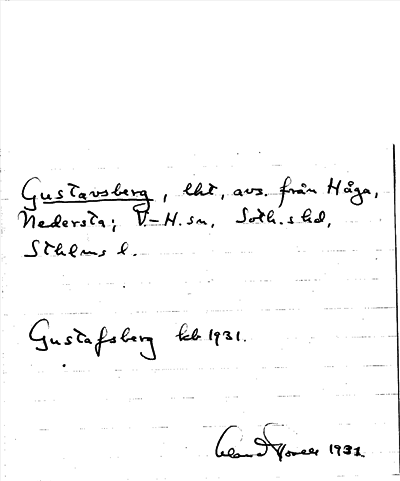 Gustavsberg, lht, avs. från Håga,
Nedersta; V.-H. sn, Soth.s hd,
Sthlms l.
Gustafsberg kb 1931.
1931